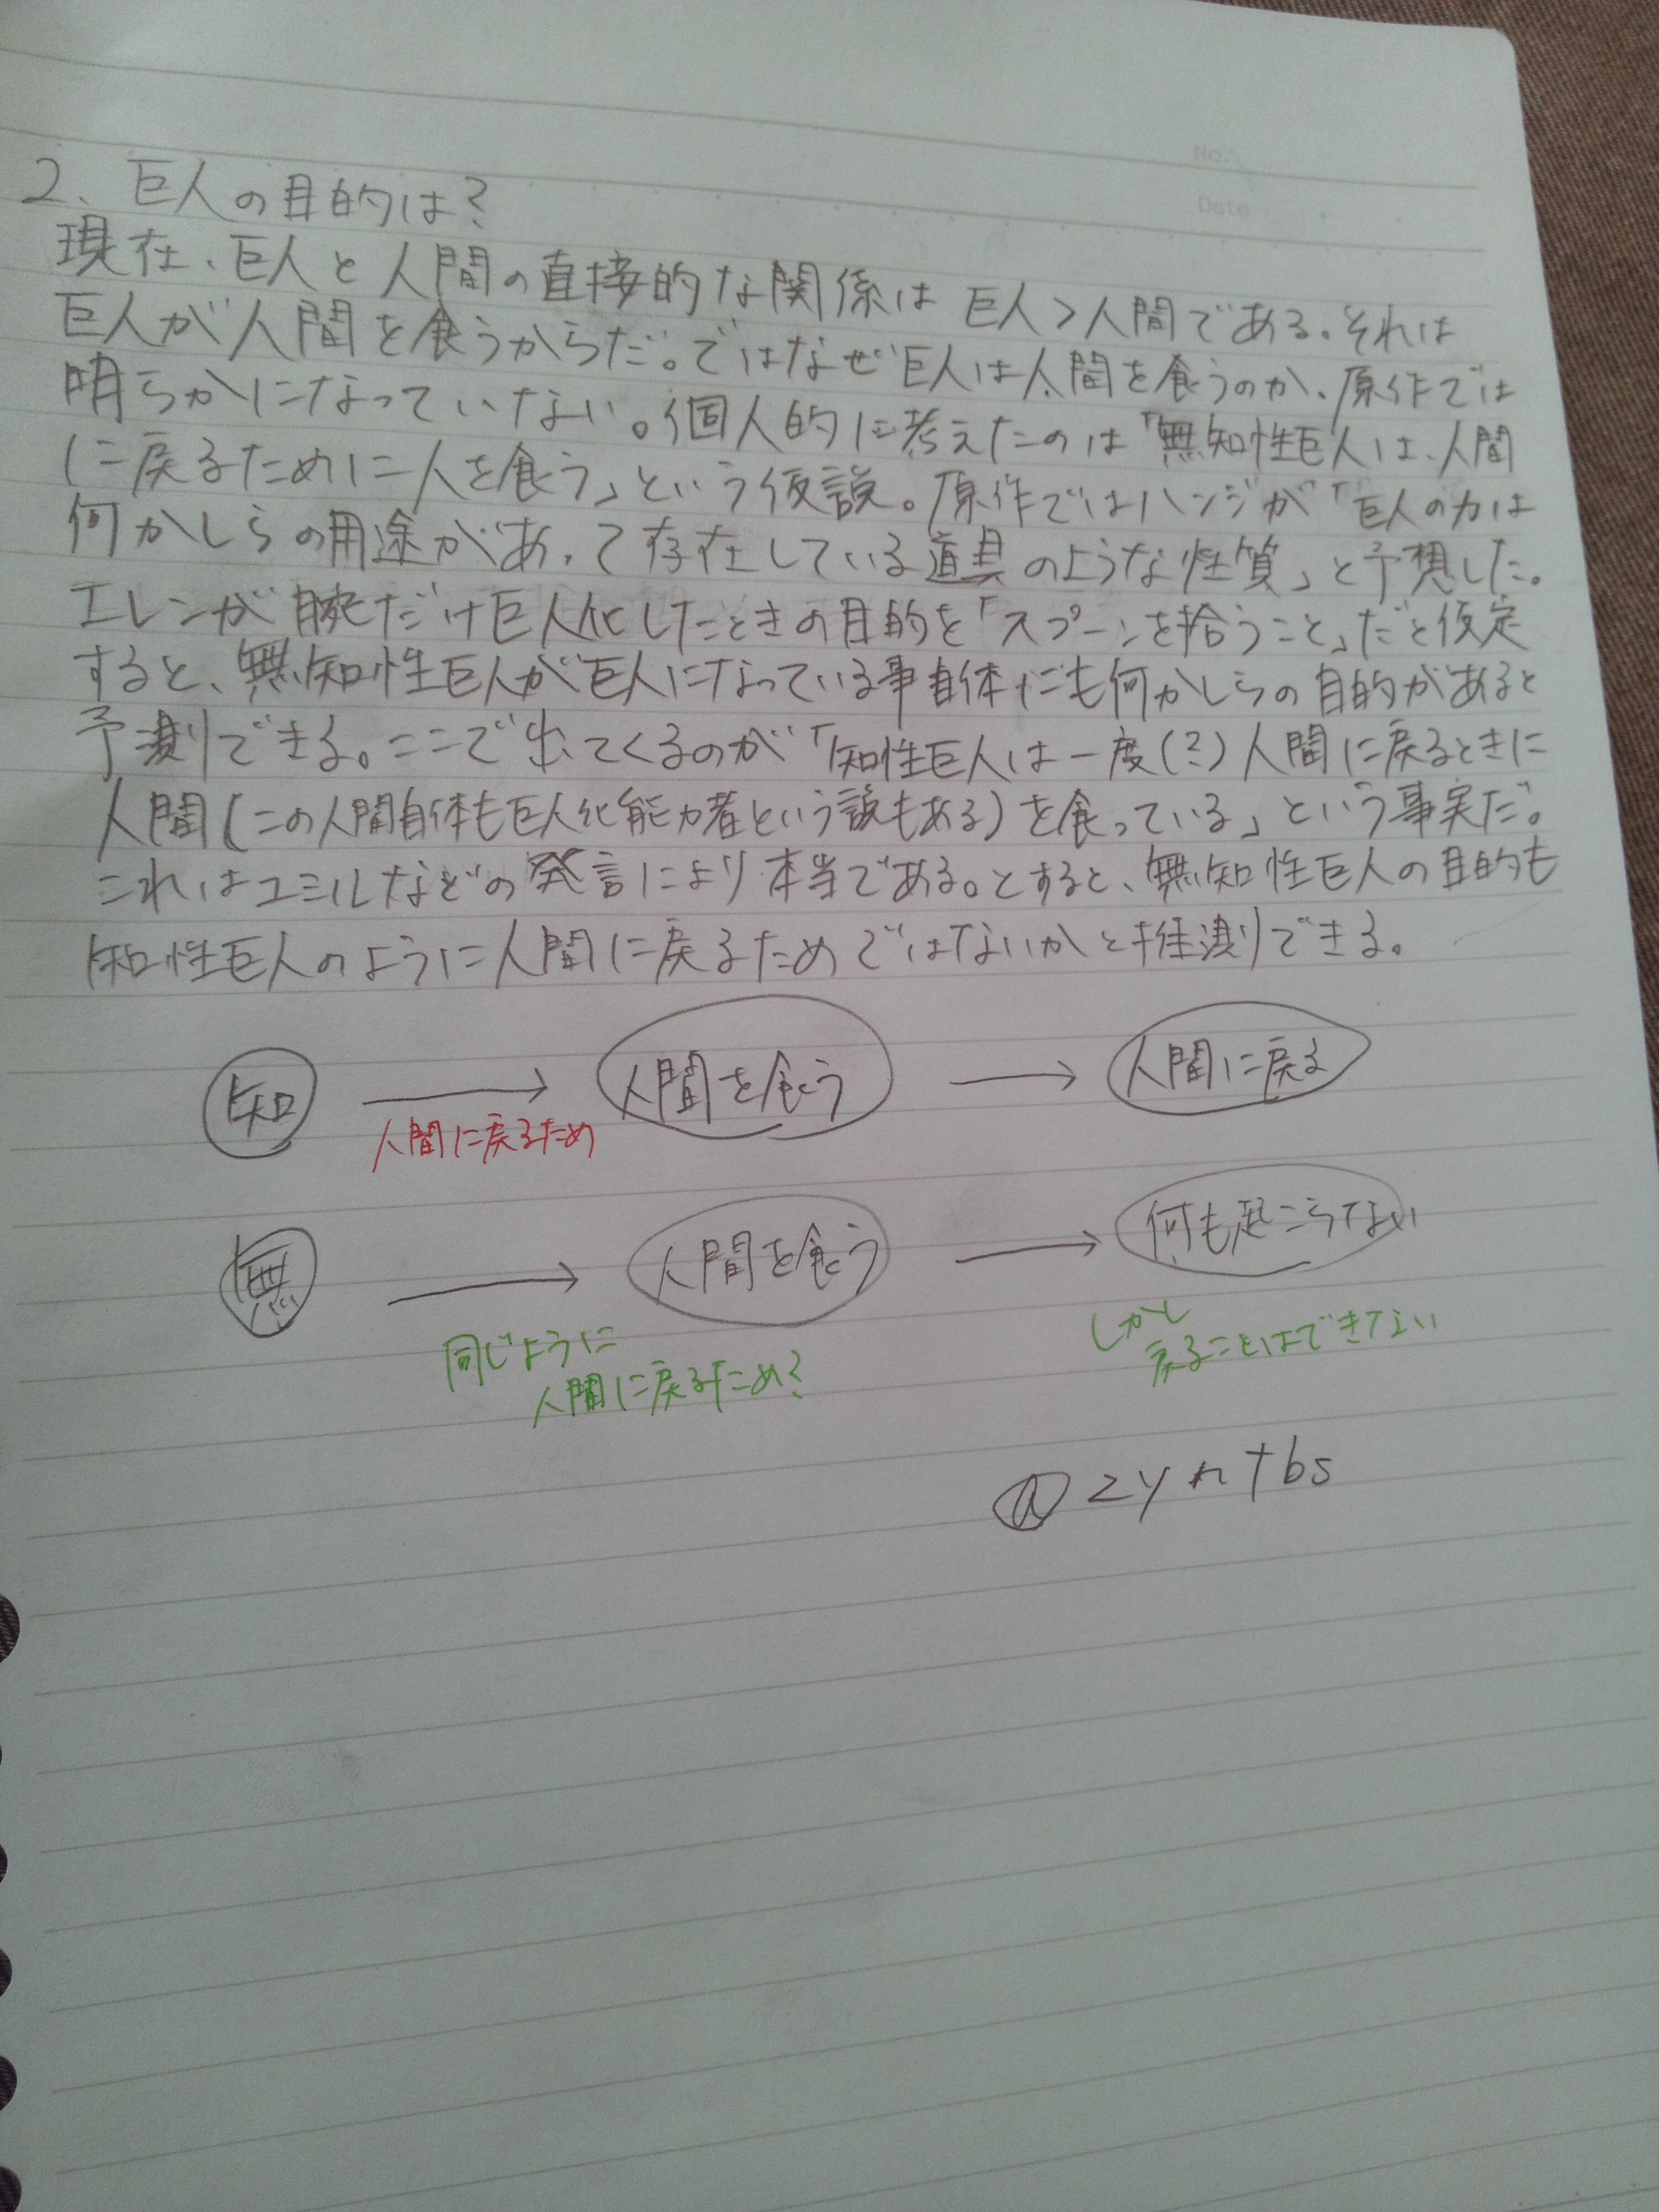 No.
Date
2、巨人の目的は?
現在、巨人と人間の直接的な関係は 巨人>人間である。それは
巨人が人間を食うからだ。ではなぜ巨人は人間を食うのか、原作では
明らかになっていない。個人的に考えたのは「無知性巨人は、人間
に戻るために人を食う」という仮説。原作ではハンジが「巨人の力は
何かしらの用途があって存在している道具のような性質」と予想した。
エレンが腕だけ巨人化したときの目的を「スプーンを拾うこと」だと仮定
すると、無知性巨人が巨人になっている事自体にも何かしらの目的があると
予測できる。ここで出てくるのが「知性巨人は一度(?)人間に戻るときに
人間(この人間自体も巨人化能力者という説もある)を食っている」という事実だ。
これはユミルなどの発言により本当である。とすると、無知性巨人の目的も
知性巨人のように人間に戻るためではないかと推測できる。
知 → 人間を食う → 人間に戻る
人間に戻るため
無 → 人間を食う → 何も起こらない
同じように
人間に戻るため?
しかし
戻ることはできない
@zyntbs